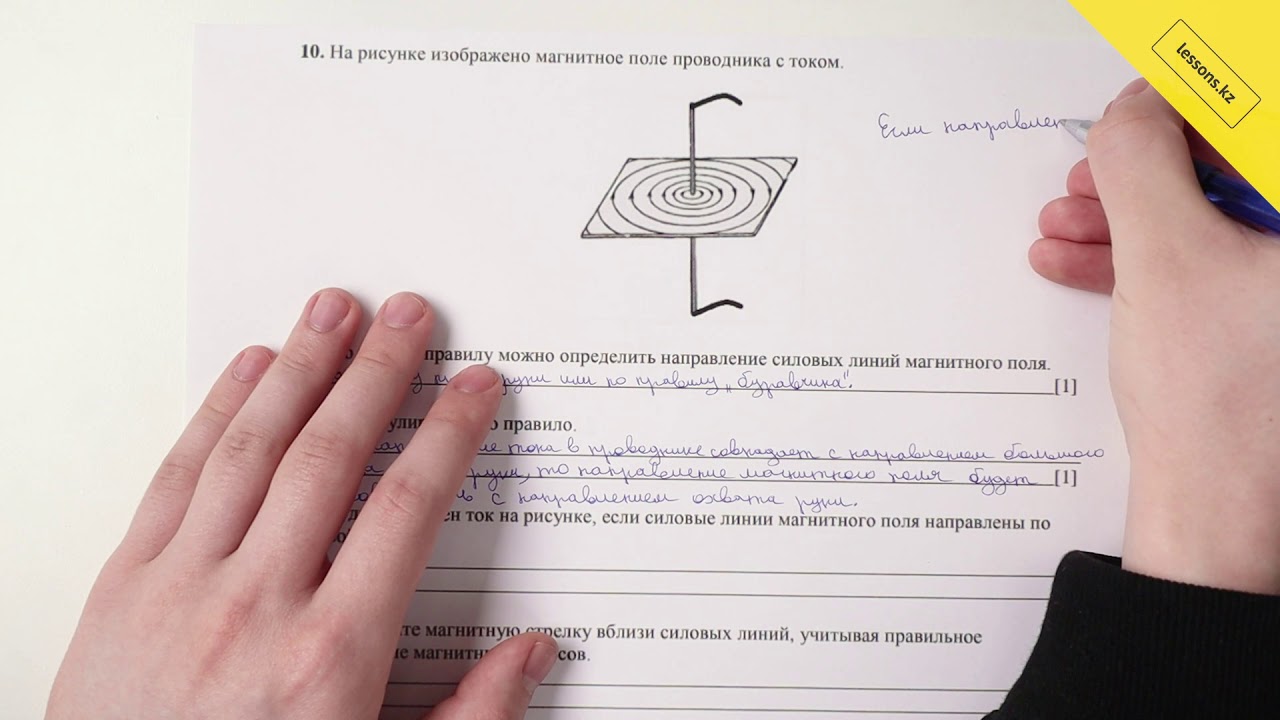 10. На рисунке изображено магнитное поле проводника с током.
lessons.kz
Если направлен
правилу можно определить направление силовых линий магнитного поля.
или по правилу „буравчика".
[1]
правило.
тока в проводнике совпадает с направлением большого
руки, то направление магнитного поля будет
[1]
с направлением охвата руки.
ен ток на рисунке, если силовые линии магнитного поля направлены по
те магнитную стрелку вблизи силовых линий, учитывая правильное